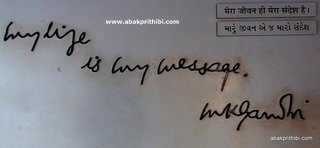 www.abakprithibi.com
मेरा जीवन ही मेरा संदेश है।
મારું જીવન એ જ મારો સંદેશ
my life
is my message.
mkgandhi
abakprithibi.com